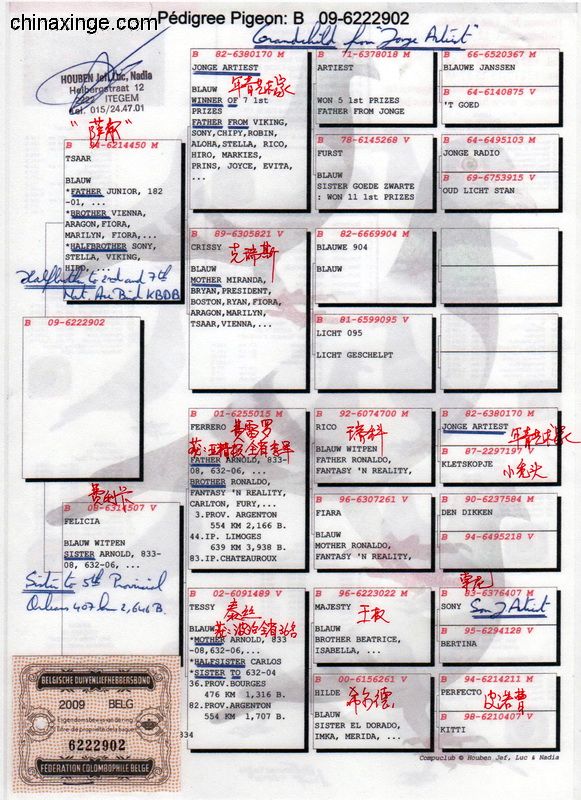 chinaxinge.com
Pédigree Pigeon: B 09-6222902
Grandchild from "Jonge Artiest"
HOUBEN Jef, Luc, Nadia
Helbergstraat 12
2222 ITEGEM
Tel. 015/24.47.01
-6214450 M
TSAAR
BLAUW
*FATHER JUNIOR, 182
-01, ...
*BROTHER VIENNA,
ARAGON, FIORA,
MARILYN, FIORA,...
*HALFBROTHER SONY,
STELLA, VIKING,
HIRO, ...
Halfbrother to 2nd and 7th
Nat. Ace Bird KBDB
B 09-6222902
费利卡
B 08-6314507 V
FELICIA
BLAUW WITPEN
SISTER ARNOLD, 833-
08, 632-06, ...
Sister to 5th Provincial
Orleans 407 km 2,646 B.
B 82-6380170 M
JONGE ARTIEST
年青艺术家
BLAUW
WINNER OF 7 1st
PRIZES
FATHER FROM VIKING,
SONY,CHIPY,ROBIN,
ALOHA,STELLA, RICO,
HIRO, MARKIES,
PRINS, JOYCE, EVITA,
...
B 89-6305821 V
CRISSY
克瑞斯
BLAUW
MOTHER MIRANDA,
BRYAN,PRESIDENT,
BOSTON,RYAN,FIORA,
ARAGON,MARILYN,
TSAAR,VIENNA,...
B 01-6255015 M
FERRERO
费雷罗
FATHER ARNOLD, 833-
08, 632-06, ...
BROTHER RONALDO,
FANTASY 'N REALITY,
CARLTON, FURY,...
3.PROV. ARGENTON
554 KM 2,166 B.
44.IP. LIMOGES
639 KM 3,938 B.
83.IP.CHATEAUROUX
B 02-6091489 V
TESSY
泰丝
BLAUW
*MOTHER ARNOLD, 833
-08,632-06,...
*HALFSISTER CARLOS
*SISTER TO 632-04
36.PROV.BOURGES
476 KM 1,316 B.
82.PROV.ARGENTON
554 KM 1,707 B.
334
B 71-6378018 M
ARTIEST
WON 5 1st PRIZES
FATHER FROM JONGE
B 78-6145268 V
FURST
BLAUW
SISTER GOEDE ZWARTE
: WON 11 1st PRIZES
B 82-6669904 M
BLAUWE 904
BLAUW
B 81-6599095 V
LICHT 095
LICHT GESCHELPT
B 92-6074700 M
RICO
瑞科
BLAUW WITPEN
FATHER RONALDO,
FANTASY 'N REALITY,
B 96-6307261 V
FIARA
BLAUW
MOTHER RONALDO,
FANTASY 'N REALITY,
B 96-6223022 M
MAJESTY
王权
BLAUW
BROTHER BEATRICE,
ISABELLA, ...
B 00-6156261 V
HILDE
希尔德
BLAUW
SISTER EL DORADO,
IMKA, MERIDA, ...
B 66-6520367 M
BLAUWE JANSSEN
B 64-6140875 V
'T GOED
B 64-6495103 M
JONGE RADIO
B 69-6753915 V
OUD LICHT STAN
B
B
B 82-6380170 M
JONGE ARTIEST
年青艺术家
B 87-2297197 V
KLETSKOPJE
小秃头
B 90-6237584 M
DEN DIKKEN
B 94-6495218 V
索尼
B 83-6376407 M
SONY
Son J Artiest
B 95-6294128 V
BERTINA
B 94-6214211 M
PERFECTO
皮诺曹
B 98-6210407 V
KITTI
Compuclub © Houben Jef, Luc & Nadia
BELGISCHE DUIVENLIEFHEBBERSBOND
2009 BELG
Eigendomstitel van de ring
Titre de propriété de la bague
6222902
FEDERATION COLOMBOPHILE BELGE